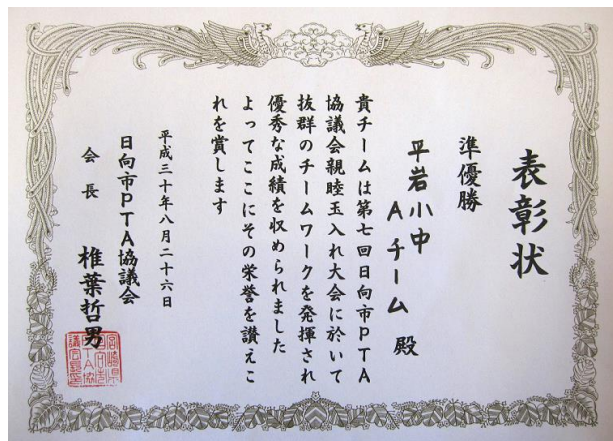 表彰状
準優勝
平岩小中
Aチーム 殿
貴チームは第七回日向市PTA
協議会親睦玉入れ大会に於いて
抜群のチームワークを発揮され
優秀な成績を収められました
よってここにその栄誉を讃えこ
れを賞します
平成三十年八月二十六日
日向市PTA協議会
会長 椎葉哲男